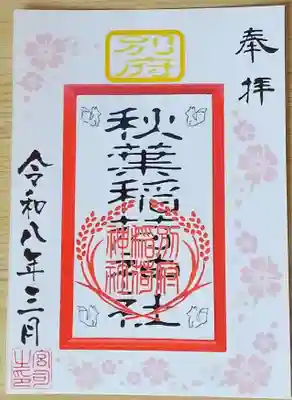 奉拝
別府
秋葉稲荷神社
別府
稲荷
神社
令和八年三月
宮司
之印